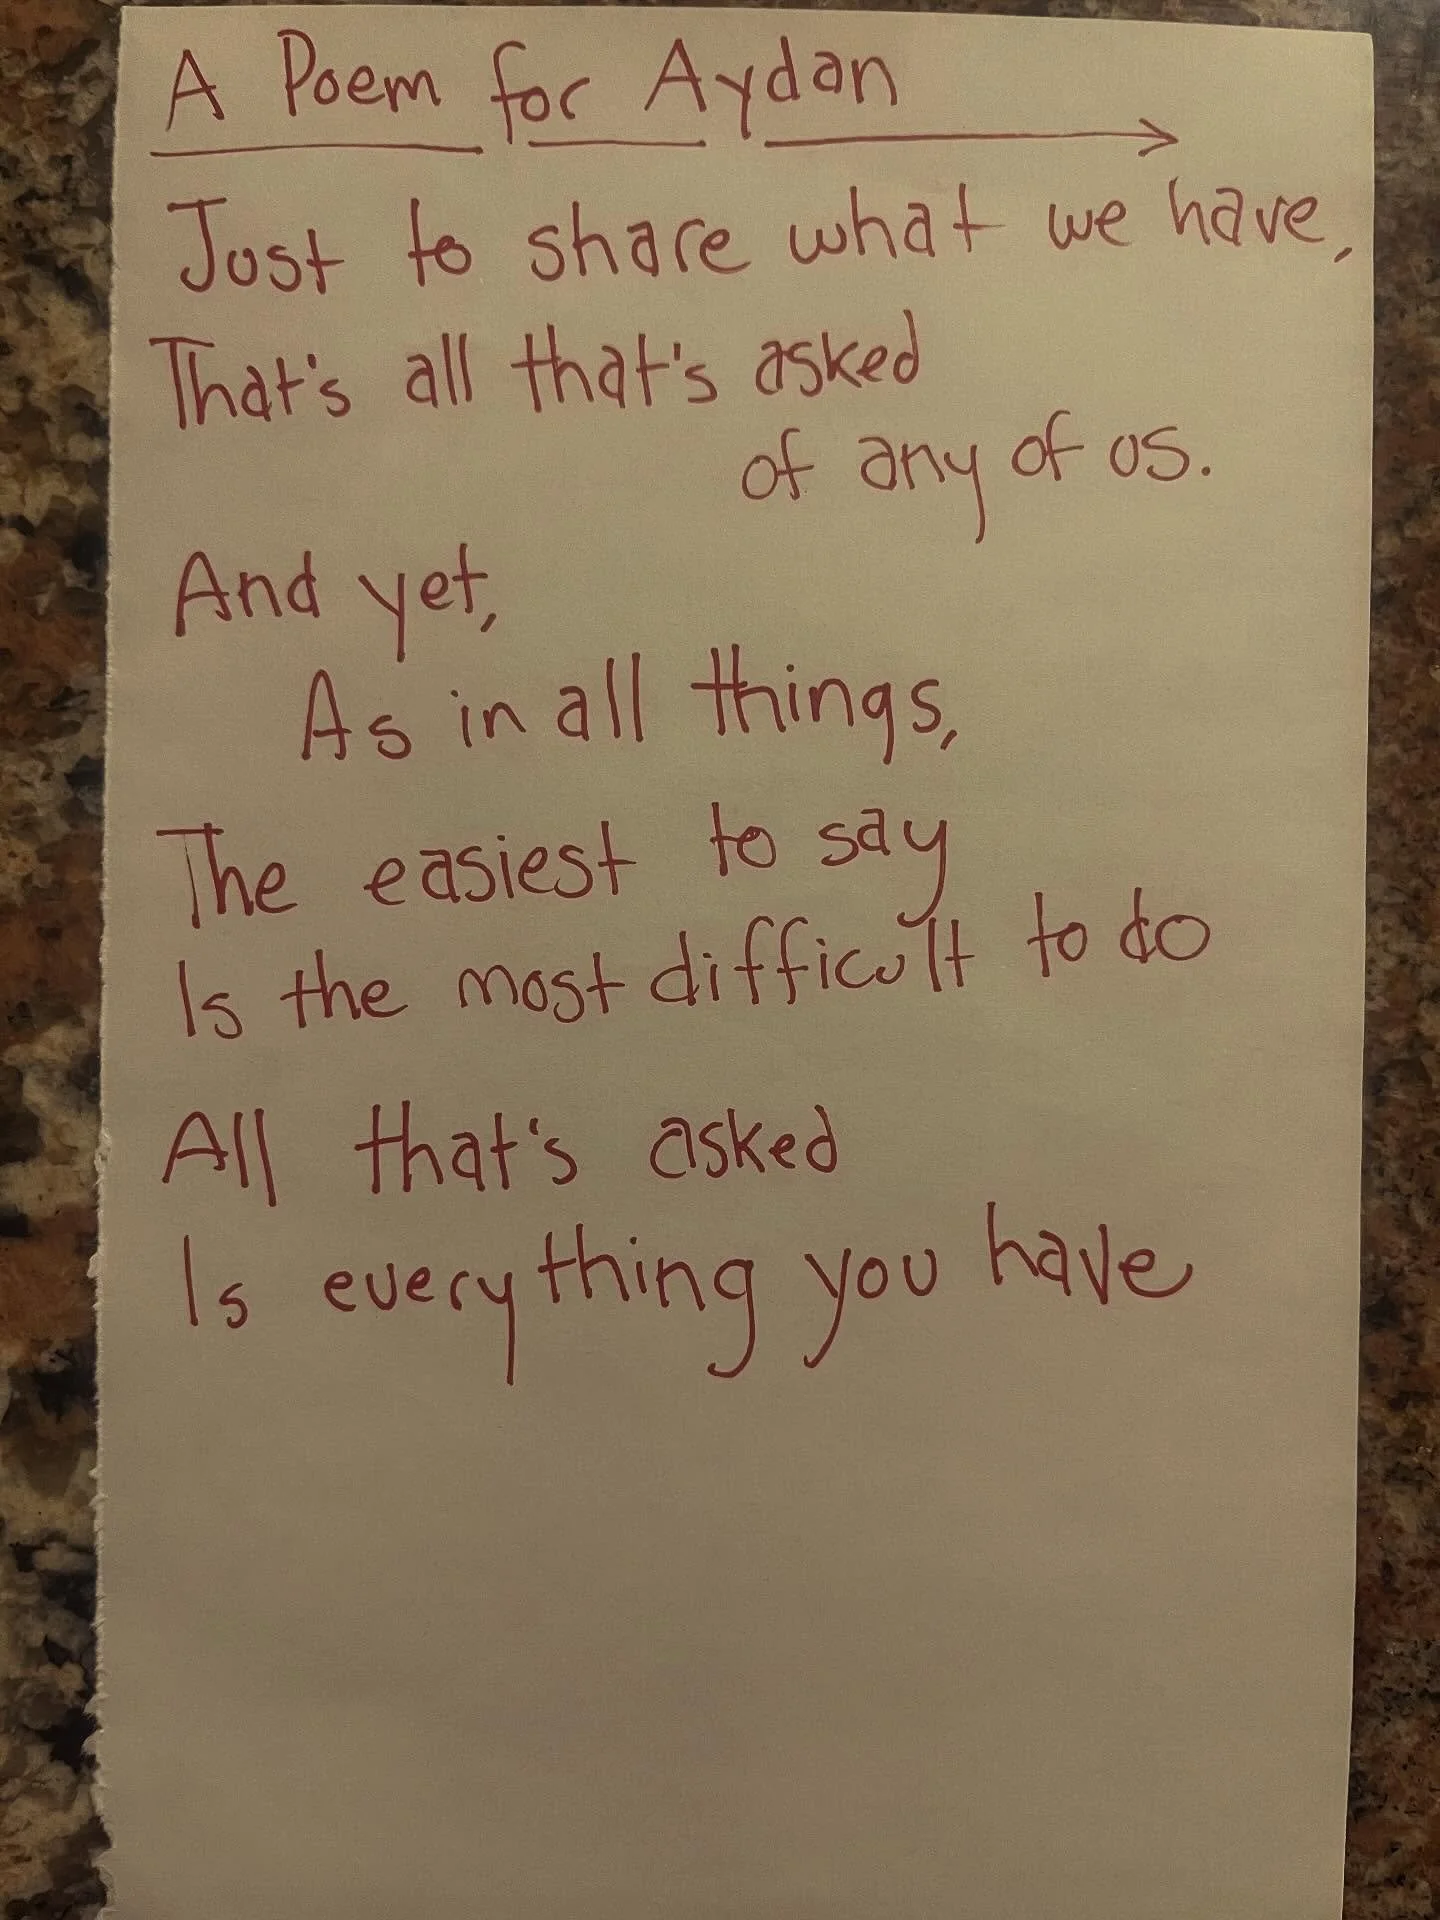 A Poem for Aydan
Just to share what we have,
That's all that's asked
of any of us.
And yet,
As in all things,
The easiest to say
Is the most difficult to do
All that's asked
Is everything you have